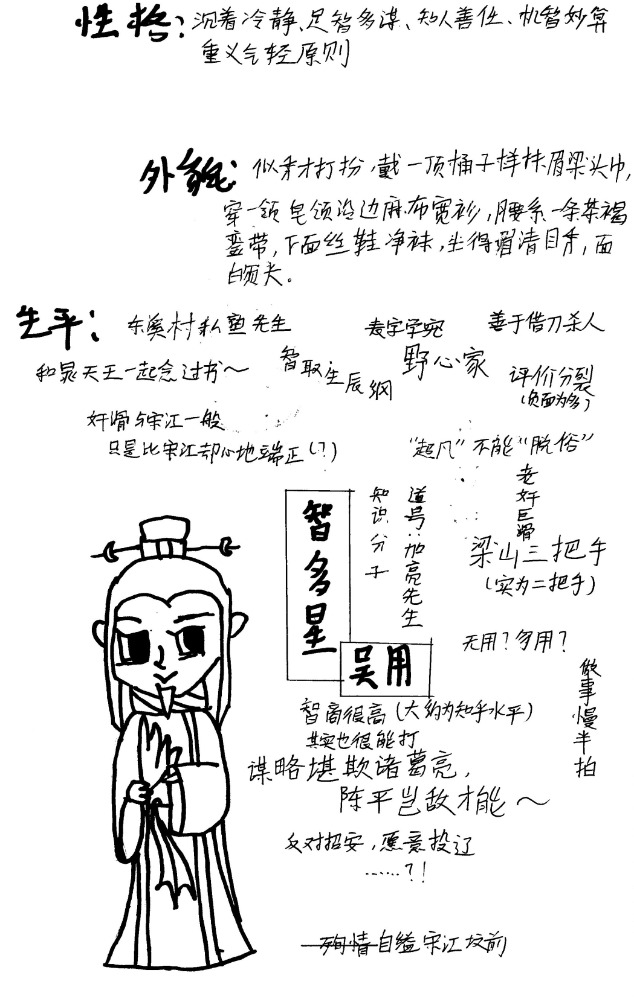 性格：沉着冷静、足智多谋、知人善任、机智妙算
重义气轻原则
外貌：似秀才打扮，戴一顶桶子样抹眉梁头巾，
穿一领皂领沿边麻布宽衫，腰系一条茶褐
銮带，下面丝鞋净袜，生得眉清目秀，面
白须长。
生平：
东溪村私塾先生
表字学究
善于借刀杀人
和晁天王一起念过书～
智取生辰纲
野心家
评价分裂
（负面为多）
奸猾与宋江一般
只是比宋江却心地端正（？）
“超凡”不能“脱俗”
老奸巨猾
知识分子
道号：加亮先生
梁山三把手
（实为二把手）
智多星
吴用
无用？多用？
做事慢半拍
智商很高（大约为知乎水平）
其实也很能打
谋略堪欺诸葛亮，
陈平岂敌才能～
反对招安，愿意投辽
……？！
殉情自缢宋江坟前